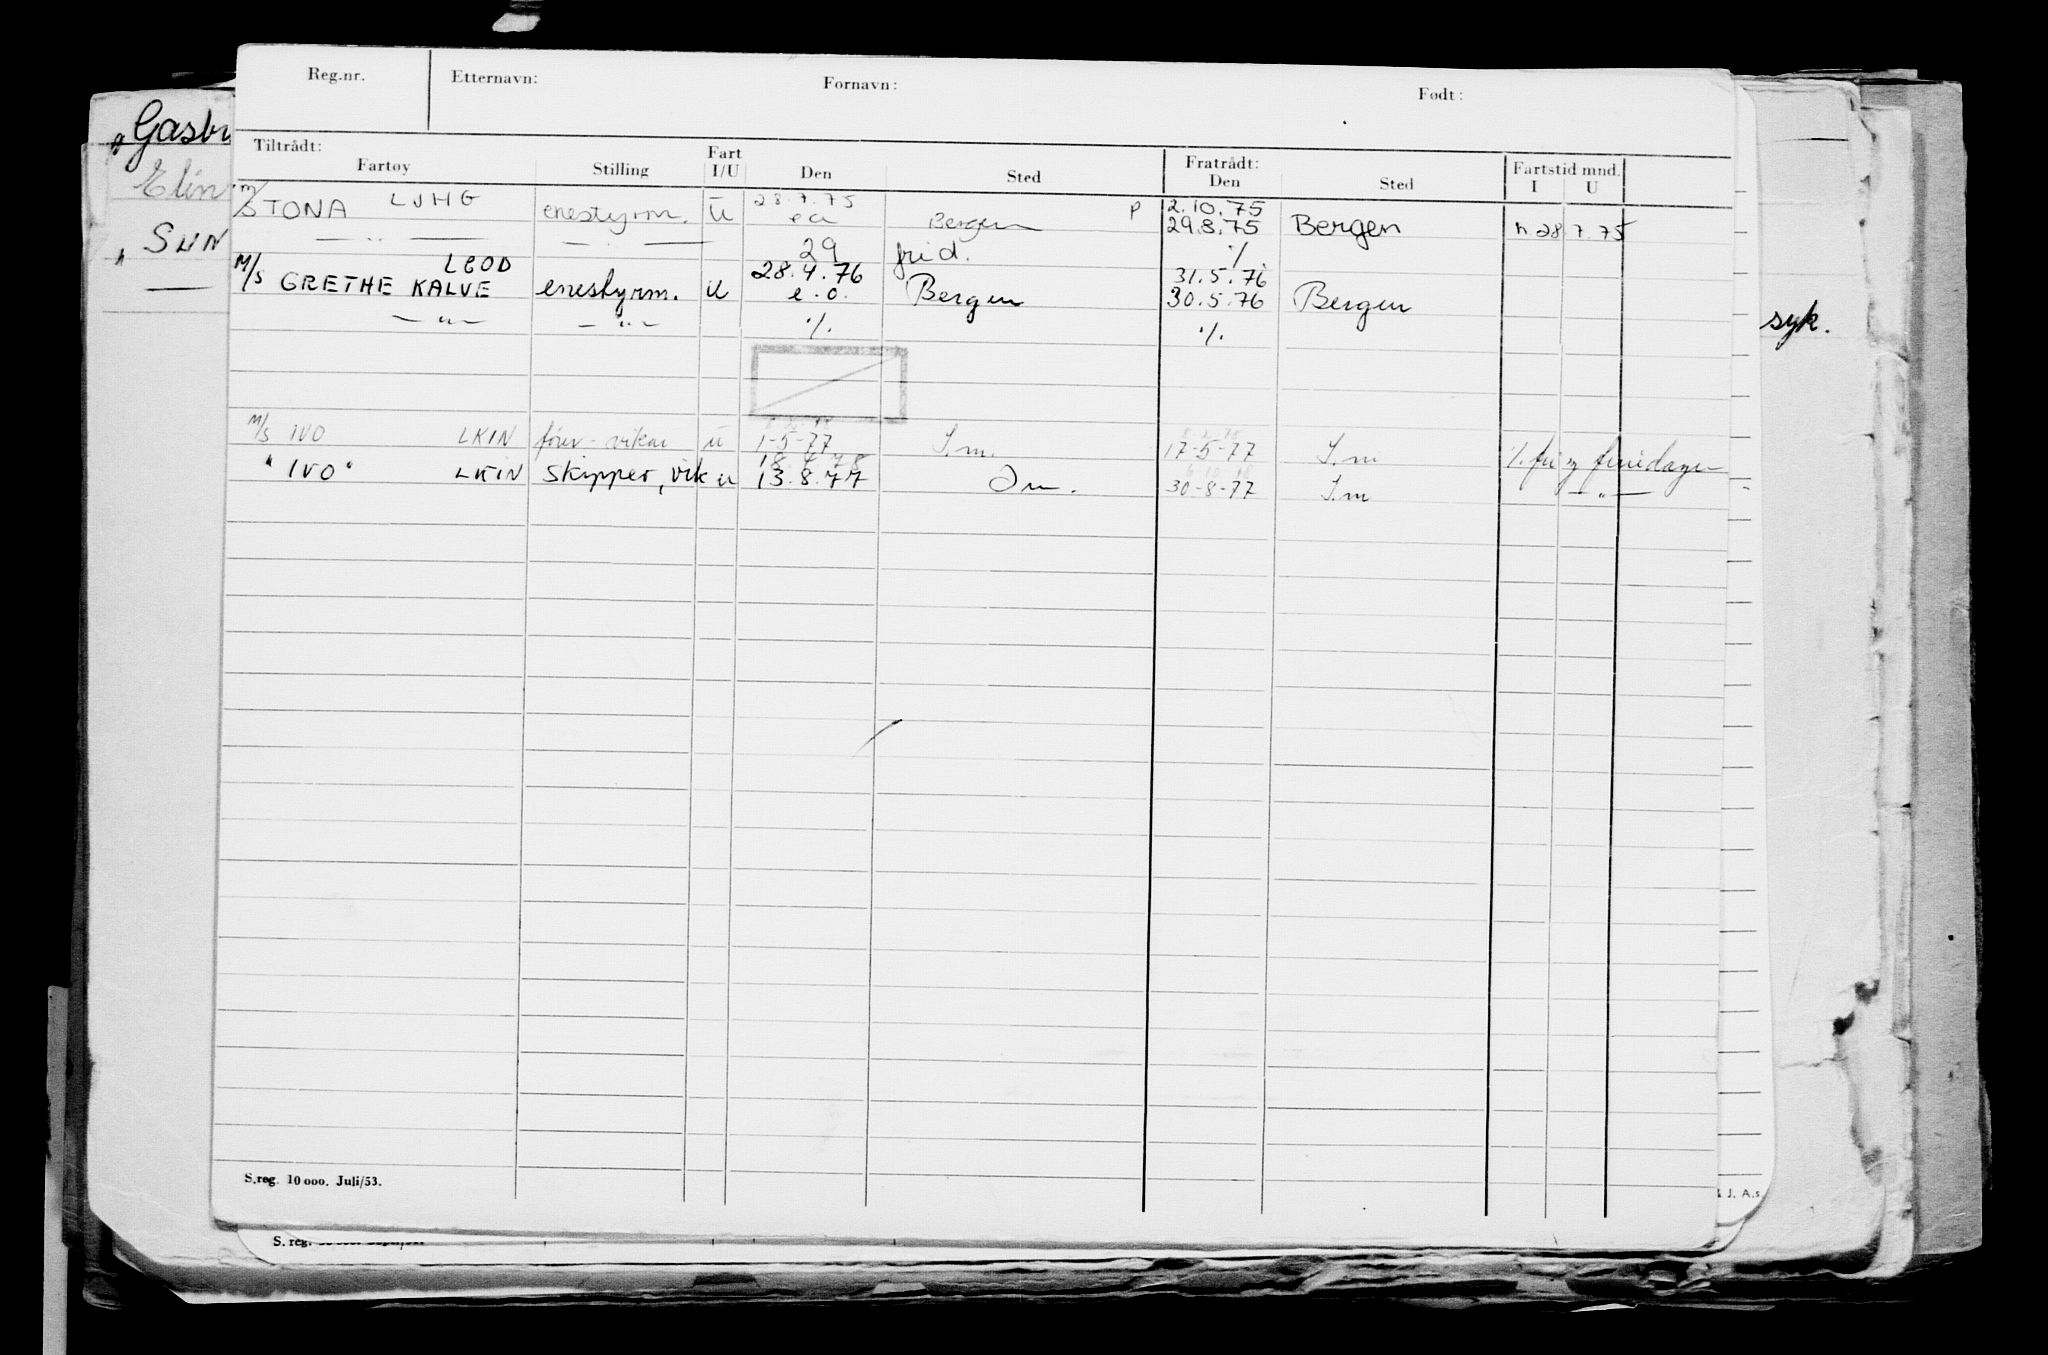 Reg.nr. Etternavn: Fornavn: Født:
Tiltrådt: Fartøy Stilling Fart I/U Den Sted Fratrådt: Den Sted Fartstid mnd. I U
"Gasbr
Elin
" SUN
M/S STONA LJHG enestyrm. U 28.7.75 Bergen P 2.10.75
29.8.75 Bergen n 28.7.75
— " — — " — 29 frid. %
M/S GRETHE KALVE LEOD enestyrm. U 28.4.76 e.o. Bergen 31.5.76
30.5.76 Bergen
— " — — " — % %
syk.
M/S IVO LKIN fører-vikar U 1-5-77 I.m. 17-5-77 I.m % fri og feriedager
18.4.78
" IVO " LKIN Skipper, vik u 13.8.77 Im. 30-8-77 I.m — " —
S.reg. 10 000. Juli/53.
& J. A.s
S. reg.